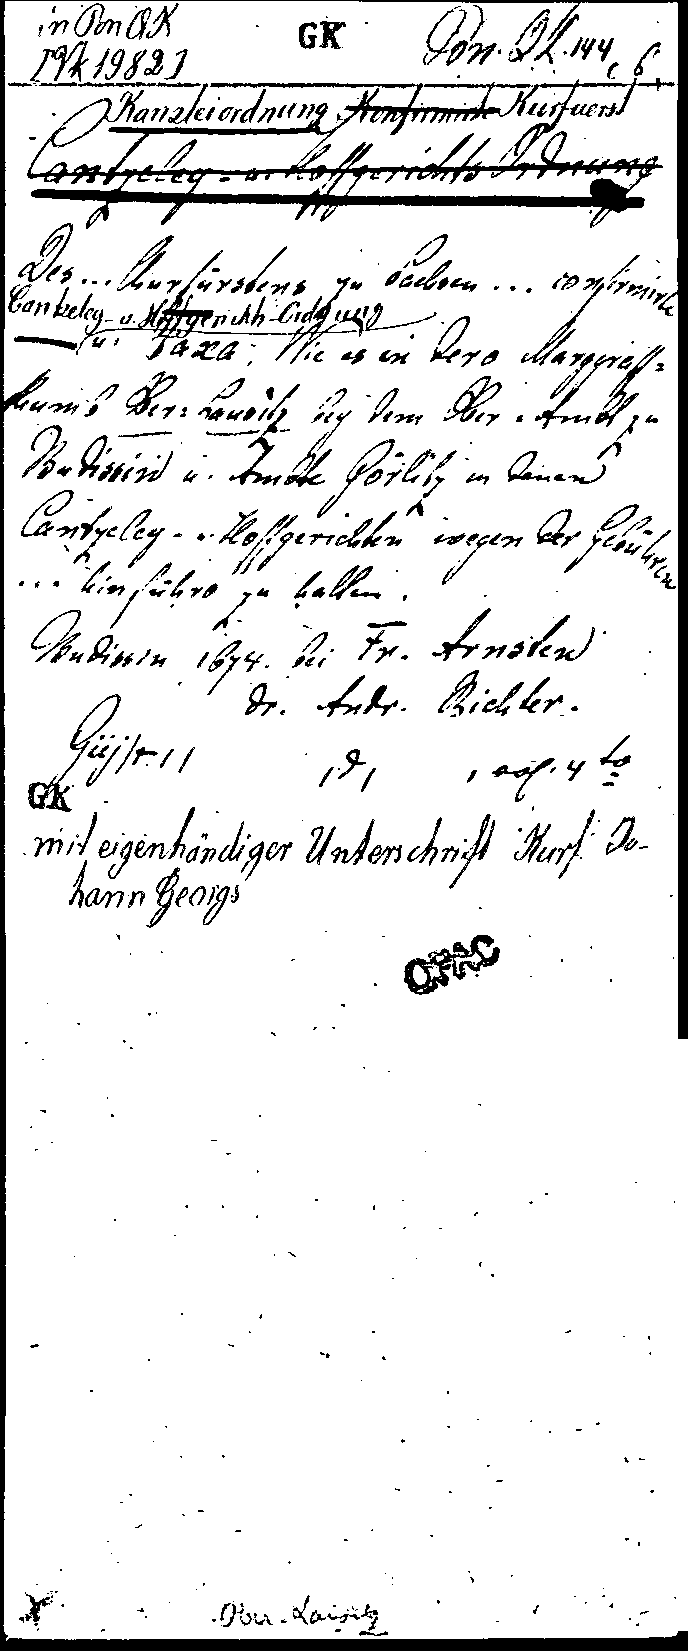 in Pon QK
GK
Pon. QK. 144, 6.
[Vk 1982]
Kanzleiordnung, Konfirmirte Kurfuerst
Cantzeley- u. Hoffgerichts Ordnung
Des... Churfürstens zu Sachsen ... confirmirte
Cantzeley- u. Hoffgericht-Ordnung
u. Taxa; Wie es in dero Marggraff-
thumb Ober-Lausitz bey dem Ober-Ambt zu
Budissin u. Ambte Görlitz in denen
Cantzeley- u. Hoffgerichten wegen der Gebühren
... hinführo zu halten.
Budissin 1674. bei Fr. Arnsten
dr. Andr. Richter.
4 to
GK
mit eigenhändiger Unterschrift Kurf. Jo-
hann Georgs
OPAC
Ober-Lausitz